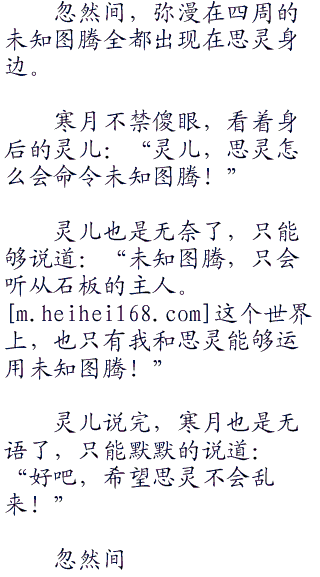 忽然间，弥漫在四周的
未知图腾全都出现在思灵身
边。
寒月不禁傻眼，看着身
后的灵儿：“灵儿，思灵怎
么会命令未知图腾！”
灵儿也是无奈了，只能
够说道：“未知图腾，只会
听从石板的主人。
[m.heihei168.com]这个世界
上，也只有我和思灵能够运
用未知图腾！”
灵儿说完，寒月也是无
语了，只能默默的说道：
“好吧，希望思灵不会乱
来！”
忽然间